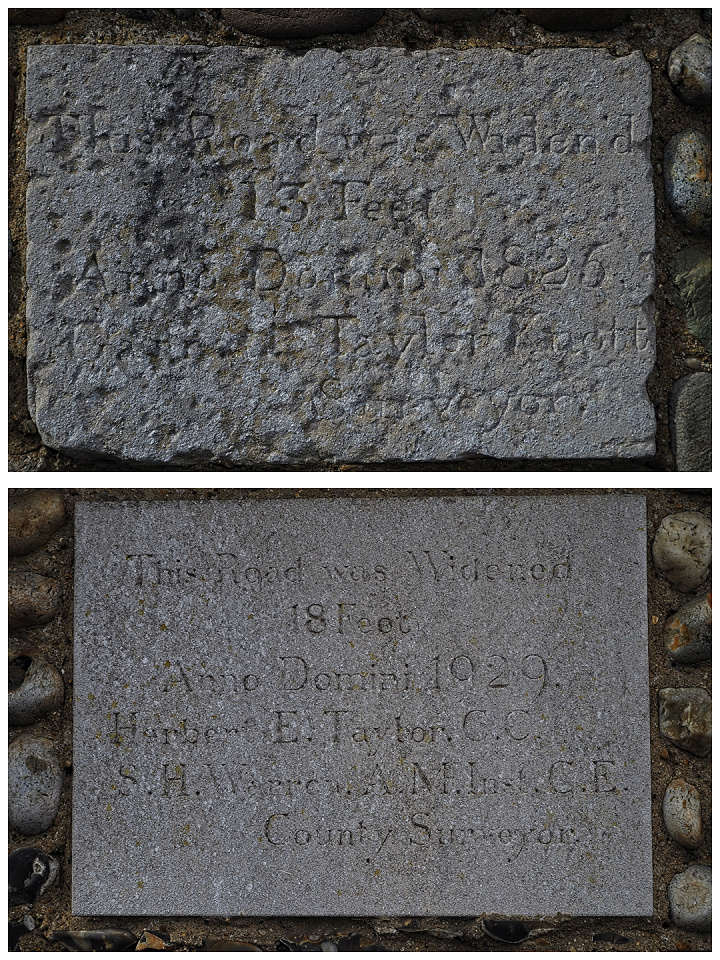 This Road was Widen'd
13 Feet
Anno Domini 1826.
Taylor Knott
Surveyor
This Road was Widened
18 Feet
Anno Domini 1929.
Herbert E. Taylor. C.C.
S.H. Warren. A.M.Inst.C.E.
County Surveyor.